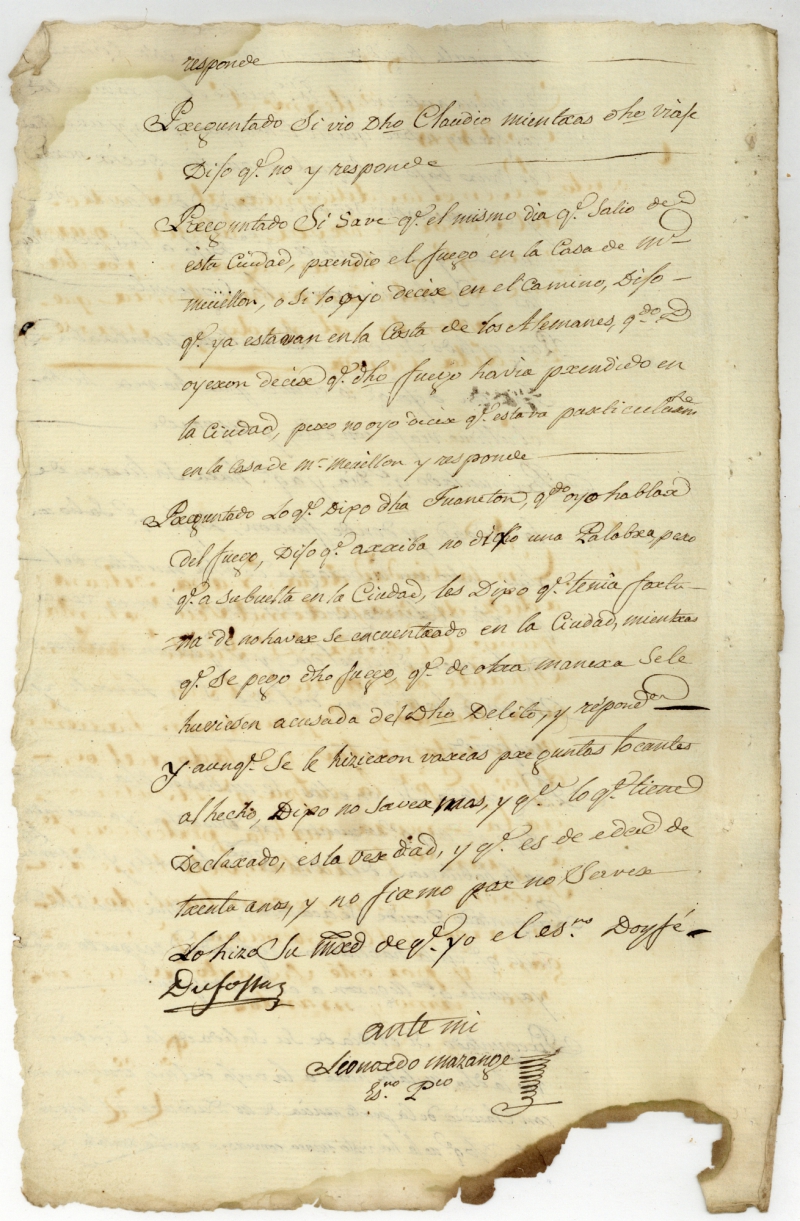 responde
Preguntado Si vio Dho Claudio mientras dho viaje
Dijo qe. no y responde
Preguntado Si Save qe. el mismo dia qe. Salio de
esta Ciudad, prendio el fuego en la Casa de Mr
meüillon, o si lo oyo decir en el Camino, Dijo
qe. ya estavan en la Costa de los Alemanes, qdo.
oyeron decir qe. dho fuego havia prendido en
la Ciudad, pero no oyo decir qe. estava particularmte
en la Casa de Mr meüillon y responde
Preguntado Lo qe. Dixo dha Juaneton, qdo oyo hablar
del fuego, Dijo qe. arriba no dijo una Palabra pero
qe. a Su buelta en la Ciudad, les Dixo qe. tenia fortu-
na de no haver Se encuentrado en la Ciudad, mientras
qe. Se pego dho fuego, qe. de otra manera Se le
huviesen acusada del Dho Delito, y responde
Y aunqe. Se le hizieron varias preguntas tocantes
al hecho, Dixo no Saver mas, y qe. lo qe. tiene
Declarado, es la verdad, y qe. es de edad de
trenta anos, y no firmo por no Saver
Lo hizo Su Mrd de qe. yo el esno. Doy fé
Dufossat
ante mi
Leonardo mazange
Esno. Pco